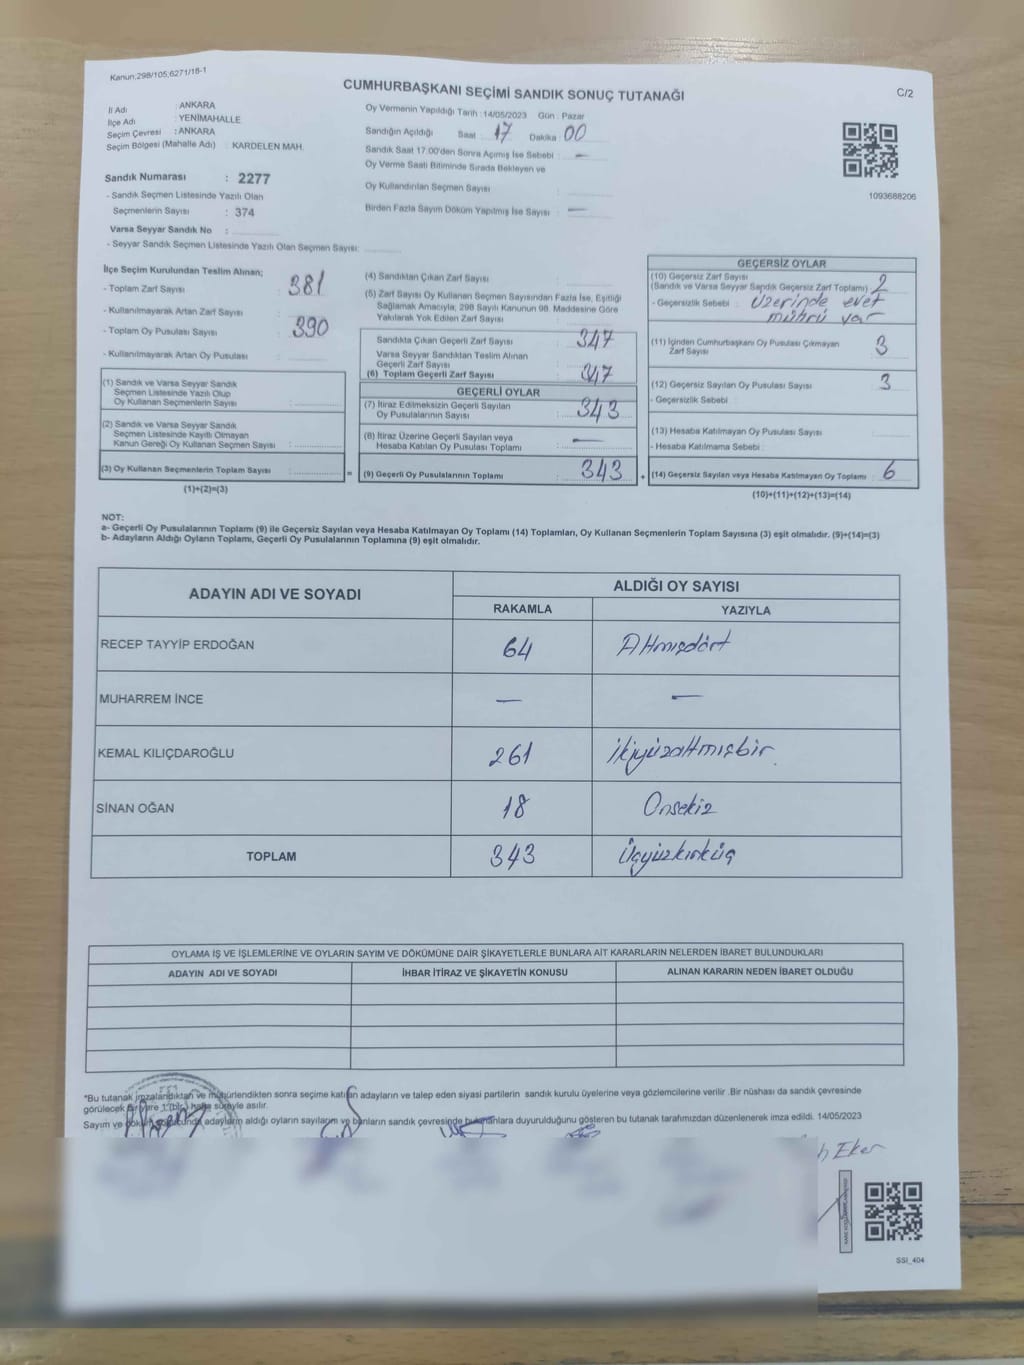 Kanun;298/105;6271/18-1
CUMHURBAŞKANI SEÇİMİ SANDIK SONUÇ TUTANAĞI
C/2
İl Adı : ANKARA
İlçe Adı : YENİMAHALLE
Seçim Çevresi : ANKARA
Seçim Bölgesi (Mahalle Adı) : KARDELEN MAH.
Sandık Numarası : 2277
- Sandık Seçmen Listesinde Yazılı Olan
Seçmenlerin Sayısı : 374
Varsa Seyyar Sandık No :
- Seyyar Sandık Seçmen Listesinde Yazılı Olan Seçmen Sayısı:
Oy Vermenin Yapıldığı Tarih : 14/05/2023 Gün : Pazar
Sandığın Açıldığı Saat : 17 Dakika : 00
Sandık Saat 17.00'den Sonra Açmış İse Sebebi : —
Oy Verme Saati Bitiminde Sırada Bekleyen ve
Oy Kullandırılan Seçmen Sayısı :
Birden Fazla Sayım Döküm Yapılmış İse Sayısı : —
1093688206
İlçe Seçim Kurulundan Teslim Alınan;
- Toplam Zarf Sayısı : 381
- Kullanılmayarak Artan Zarf Sayısı :
- Toplam Oy Pusulası Sayısı : 390
- Kullanılmayarak Artan Oy Pusulası :
(1) Sandık ve Varsa Seyyar Sandık
Seçmen Listesinde Yazılı Olup
Oy Kullanan Seçmenlerin Sayısı :
(2) Sandık ve Varsa Seyyar Sandık
Seçmen Listesinde Kayıtlı Olmayan
Kanun Gereği Oy Kullanan Seçmen Sayısı :
(3) Oy Kullanan Seçmenlerin Toplam Sayısı :
(1)+(2)=(3)
(4) Sandıktan Çıkan Zarf Sayısı :
(5) Zarf Sayısı Oy Kullanan Seçmen Sayısından Fazla İse, Eşitliği
Sağlamak Amacıyla, 298 Sayılı Kanunun 98. Maddesine Göre
Yakılarak Yok Edilen Zarf Sayısı :
Sandıkta Çıkan Geçerli Zarf Sayısı : 347
Varsa Seyyar Sandıktan Teslim Alınan
Geçerli Zarf Sayısı :
(6) Toplam Geçerli Zarf Sayısı : 347
GEÇERLİ OYLAR
(7) İtiraz Edilmeksizin Geçerli Sayılan
Oy Pusulalarının Sayısı : 343
(8) İtiraz Üzerine Geçerli Sayılan veya
Hesaba Katılan Oy Pusulası Toplamı : —
= (9) Geçerli Oy Pusulalarının Toplamı : 343 +
GEÇERSİZ OYLAR
(10) Geçersiz Zarf Sayısı
(Sandık ve Varsa Seyyar Sandık Geçersiz Zarf Toplamı) : 2
- Geçersizlik Sebebi : Üzerinde evet
mührü var
(11) İçinden Cumhurbaşkanı Oy Pusulası Çıkmayan
Zarf Sayısı : 3
(12) Geçersiz Sayılan Oy Pusulası Sayısı : 3
- Geçersizlik Sebebi :
(13) Hesaba Katılmayan Oy Pusulası Sayısı :
- Hesaba Katılmama Sebebi :
(14) Geçersiz Sayılan veya Hesaba Katılmayan Oy Toplamı : 6
(10)+(11)+(12)+(13)=(14)
NOT:
a- Geçerli Oy Pusulalarının Toplamı (9) ile Geçersiz Sayılan veya Hesaba Katılmayan Oy Toplamı (14) Toplamları, Oy Kullanan Seçmenlerin Toplam Sayısına (3) eşit olmalıdır. (9)+(14)=(3)
b- Adayların Aldığı Oyların Toplamı, Geçerli Oy Pusulalarının Toplamına (9) eşit olmalıdır.
ADAYIN ADI VE SOYADI ALDIĞI OY SAYISI
RAKAMLA YAZIYLA
RECEP TAYYİP ERDOĞAN 64 Altmışdört
MUHARREM İNCE — —
KEMAL KILIÇDAROĞLU 261 İkiyüzaltmışbir.
SİNAN OĞAN 18 Onsekiz
TOPLAM 343 Üçyüzkırküç
OYLAMA İŞ VE İŞLEMLERİNE VE OYLARIN SAYIM VE DÖKÜMÜNE DAİR ŞİKAYETLERLE BUNLARA AİT KARARLARIN NELERDEN İBARET BULUNDUKLARI
ADAYIN ADI VE SOYADI İHBAR İTİRAZ VE ŞİKAYETİN KONUSU ALINAN KARARIN NEDEN İBARET OLDUĞU
*Bu tutanak imzalandıktan ve mühürlendikten sonra seçime katılan adayların ve talep eden siyasi partilerin sandık kurulu üyelerine veya gözlemcilerine verilir .Bir nüshası da sandık çevresinde
görülecek bir yere 1 (bir) hafta süreyle asılır.
Sayım ve döküm sonucunda adayların aldığı oyların sayılarını ve bunların sandık çevresinde bulunanlara duyurulduğunu gösteren bu tutanak tarafımızdan düzenlenerek imza edildi. 14/05/2023
Eker
SSI_404